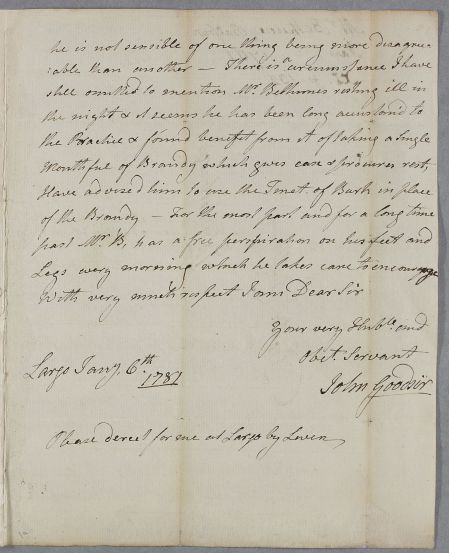 he is not sensible of one thing being more disagree-
-able than another – There is a circumstance I have
still omitted to mention Mr. Bethunes resting ill in
the night & it seems he has been long accustom'd to
the Practice & found benefit from it of taking a Single
Mouthful of Brandy which gives ease & procures rest,
Have advised him to use the Tinct of Bark in place
of the Brandy – For the most part and for a long time
past Mr. B. has a free perspiration on his feet and
Legs every morning which he takes care to encourage
With very much respect I am Dear Sir
Your very Humble and
Obet. Servant
Largo Jany. 6.th 1781
John Goodsir
Please derect for me at Largo by Leven